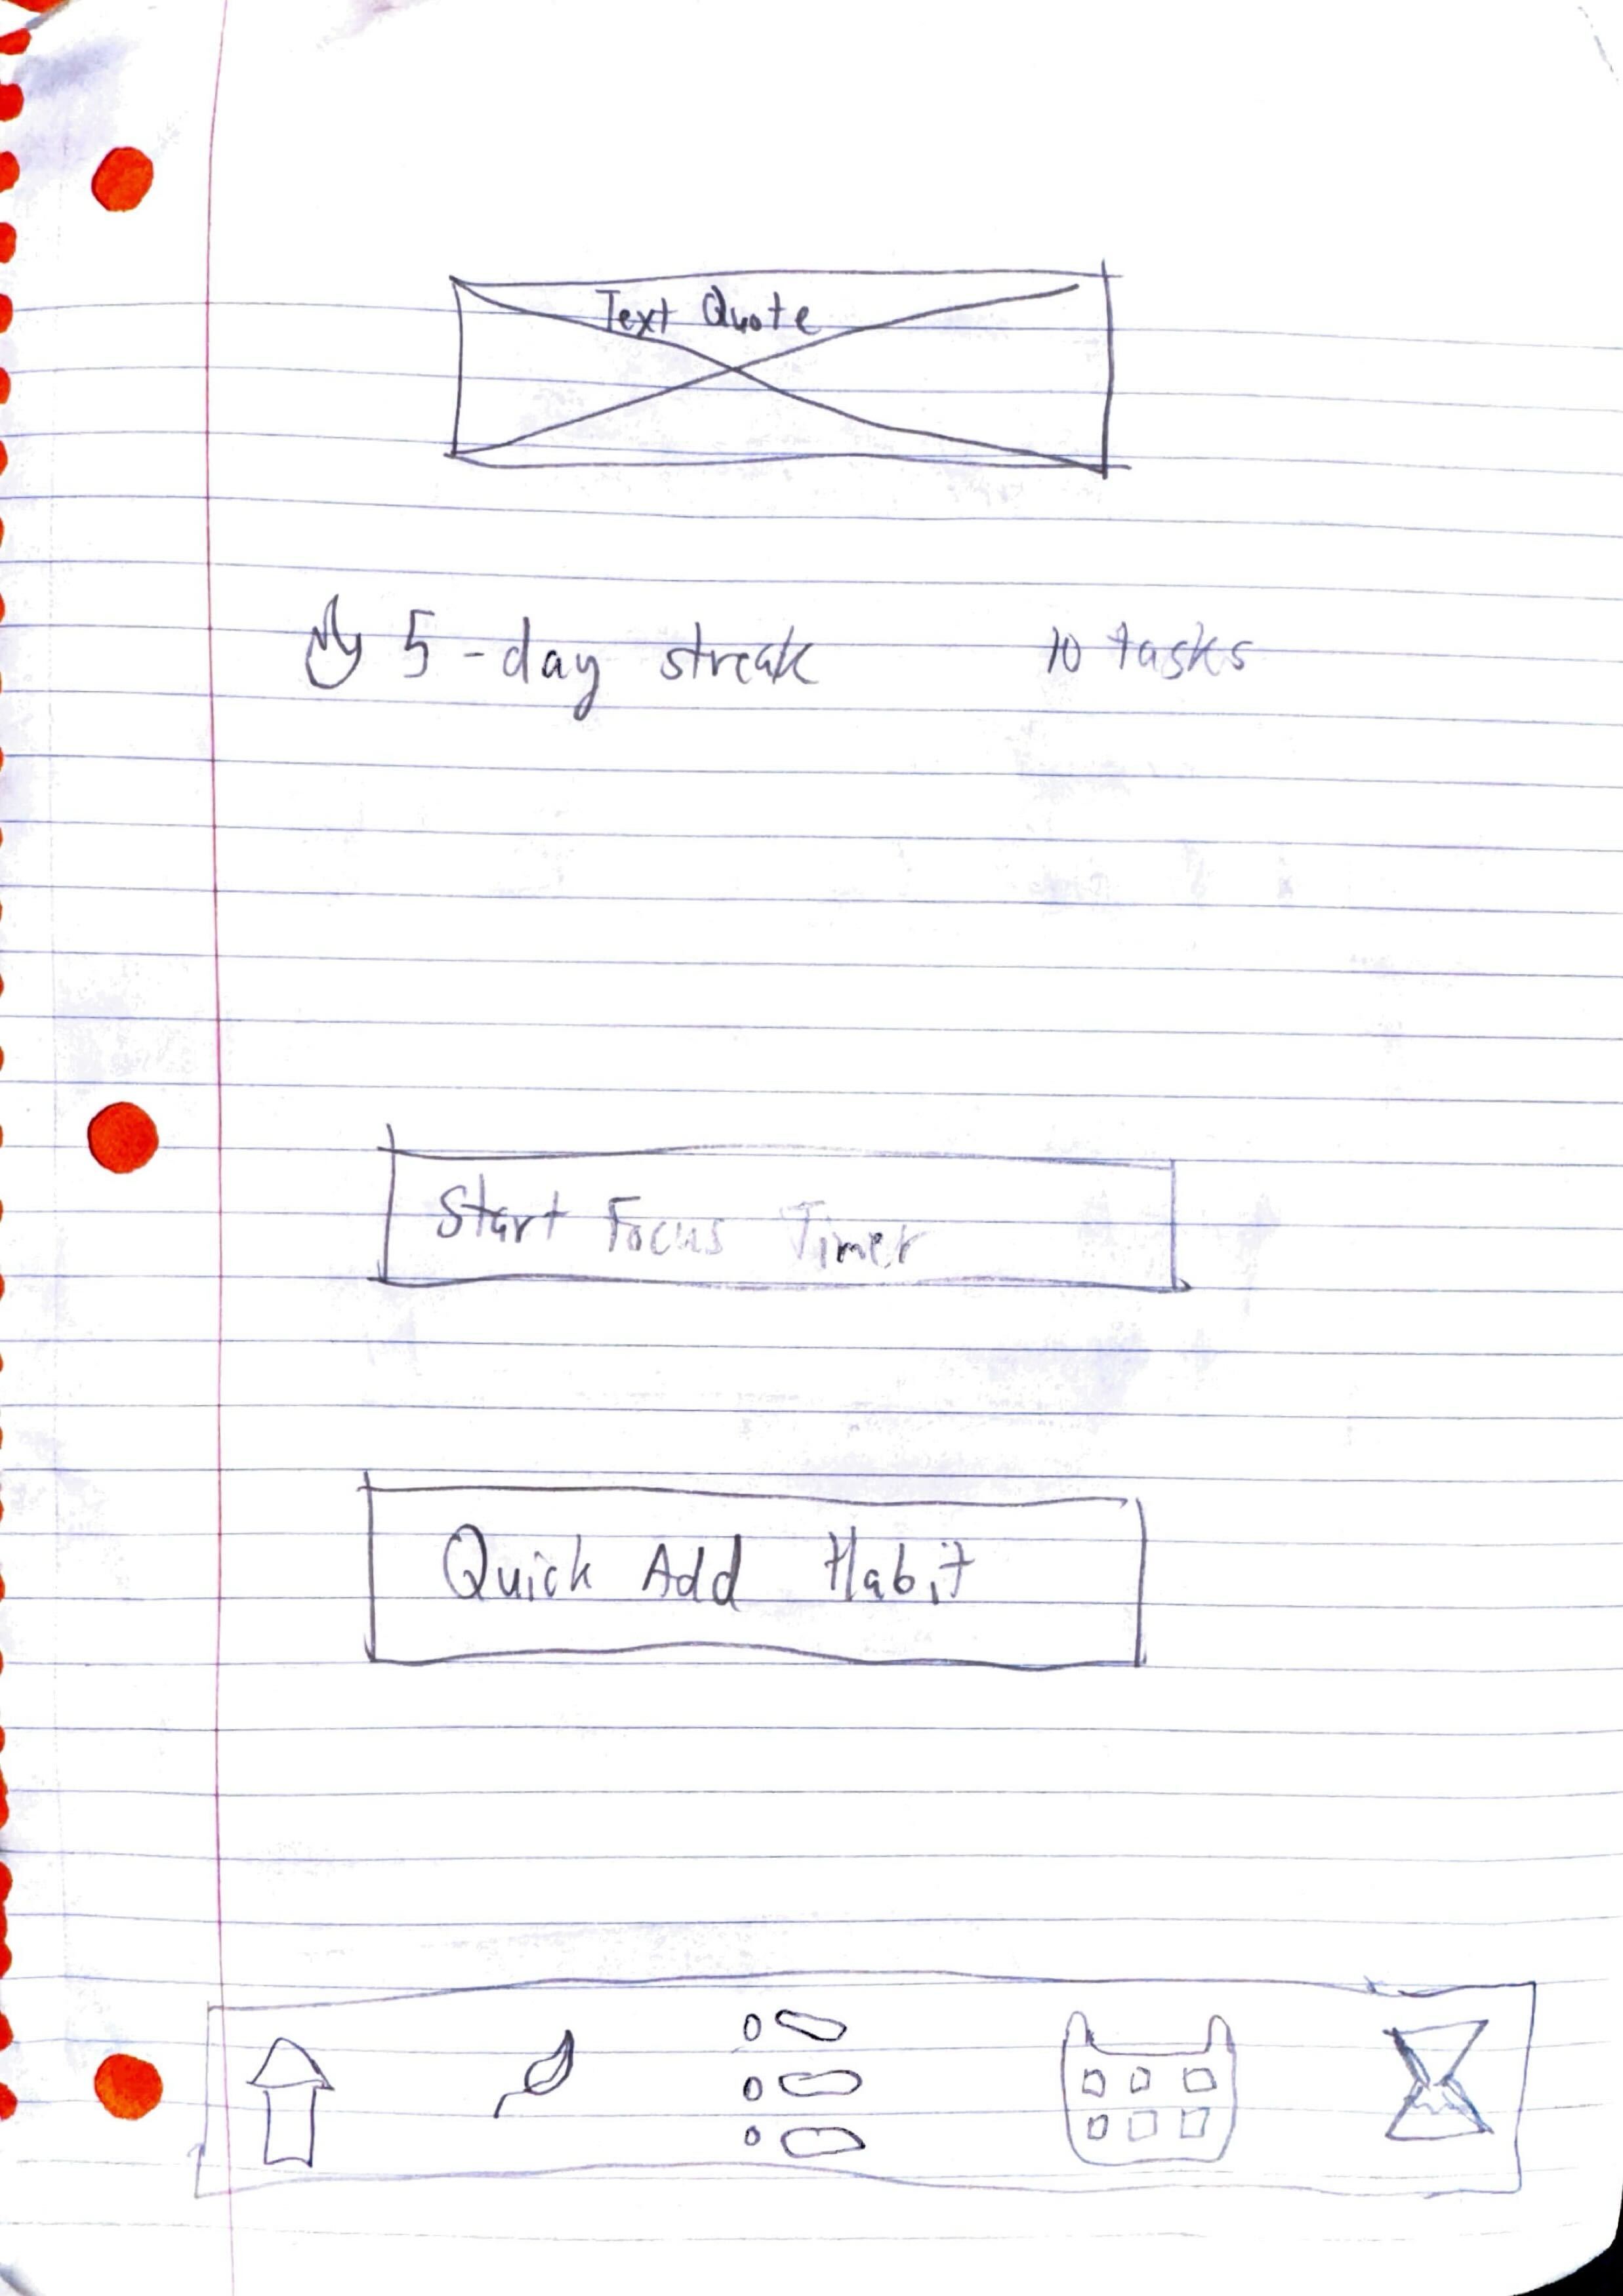 Text Quote
5-day streak 10 tasks
Start Focus Timer
Quick Add Habit